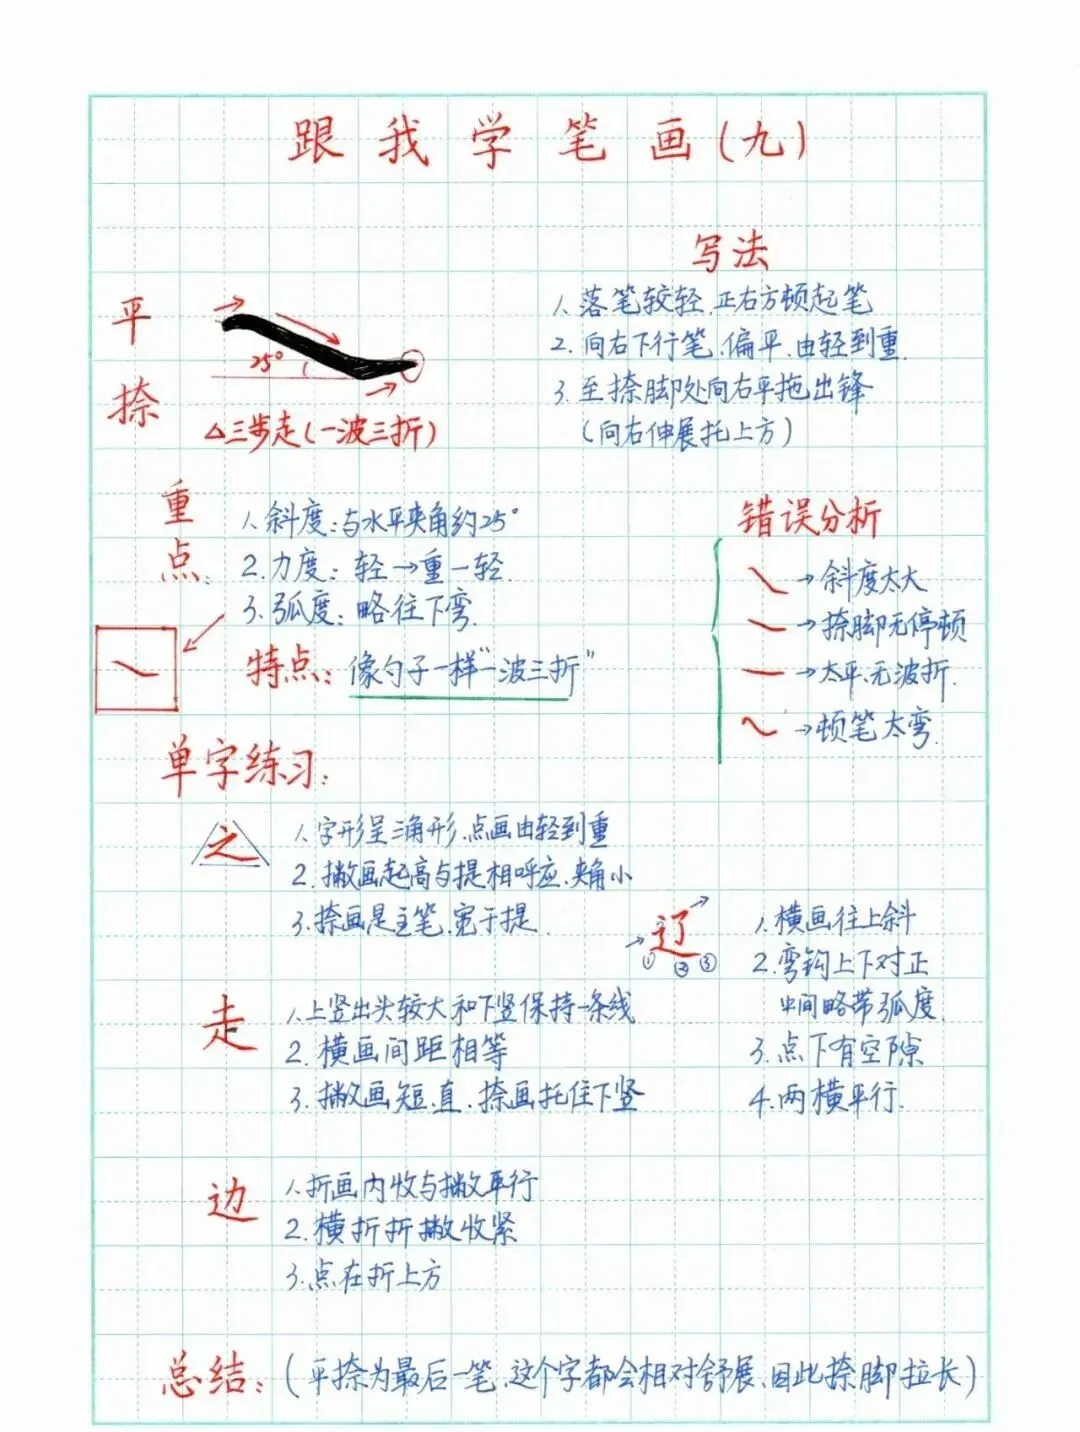 跟我学笔画(九)
平捺
25°
△三步走(一波三折)
写法
1.落笔较轻.正右方顿起笔
2.向右下行笔.偏平.由轻到重.
3.至捺脚处向右平拖出锋
(向右伸展托上方)
重点:
1.斜度:与水平夹角约25°
2.力度:轻→重—轻.
3.弧度:略往下弯.
特点:像勺子一样"一波三折"
错误分析
→斜度太大
→捺脚无停顿
→太平.无波折.
→顿笔太弯.
单字练习:
之
1.字形呈三角形.点画由轻到重
2.撇画起高与提相呼应.夹角小
3.捺画是主笔.宽于提.
辽
① ② ③
1.横画往上斜
2.弯钩上下对正
中间略带弧度.
3.点下有空隙
4.两横平行.
走
1.上竖出头较大和下竖保持一条线
2.横画间距相等
3.撇画短.直.捺画托住下竖
边
1.折画内收与撇平行
2.横折折撇收紧
3.点在折上方
总结:(平捺为最后一笔.这个字都会相对舒展.因此捺脚拉长)